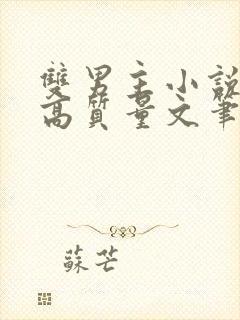 雙男主小說
高質量文筆
蘇芒